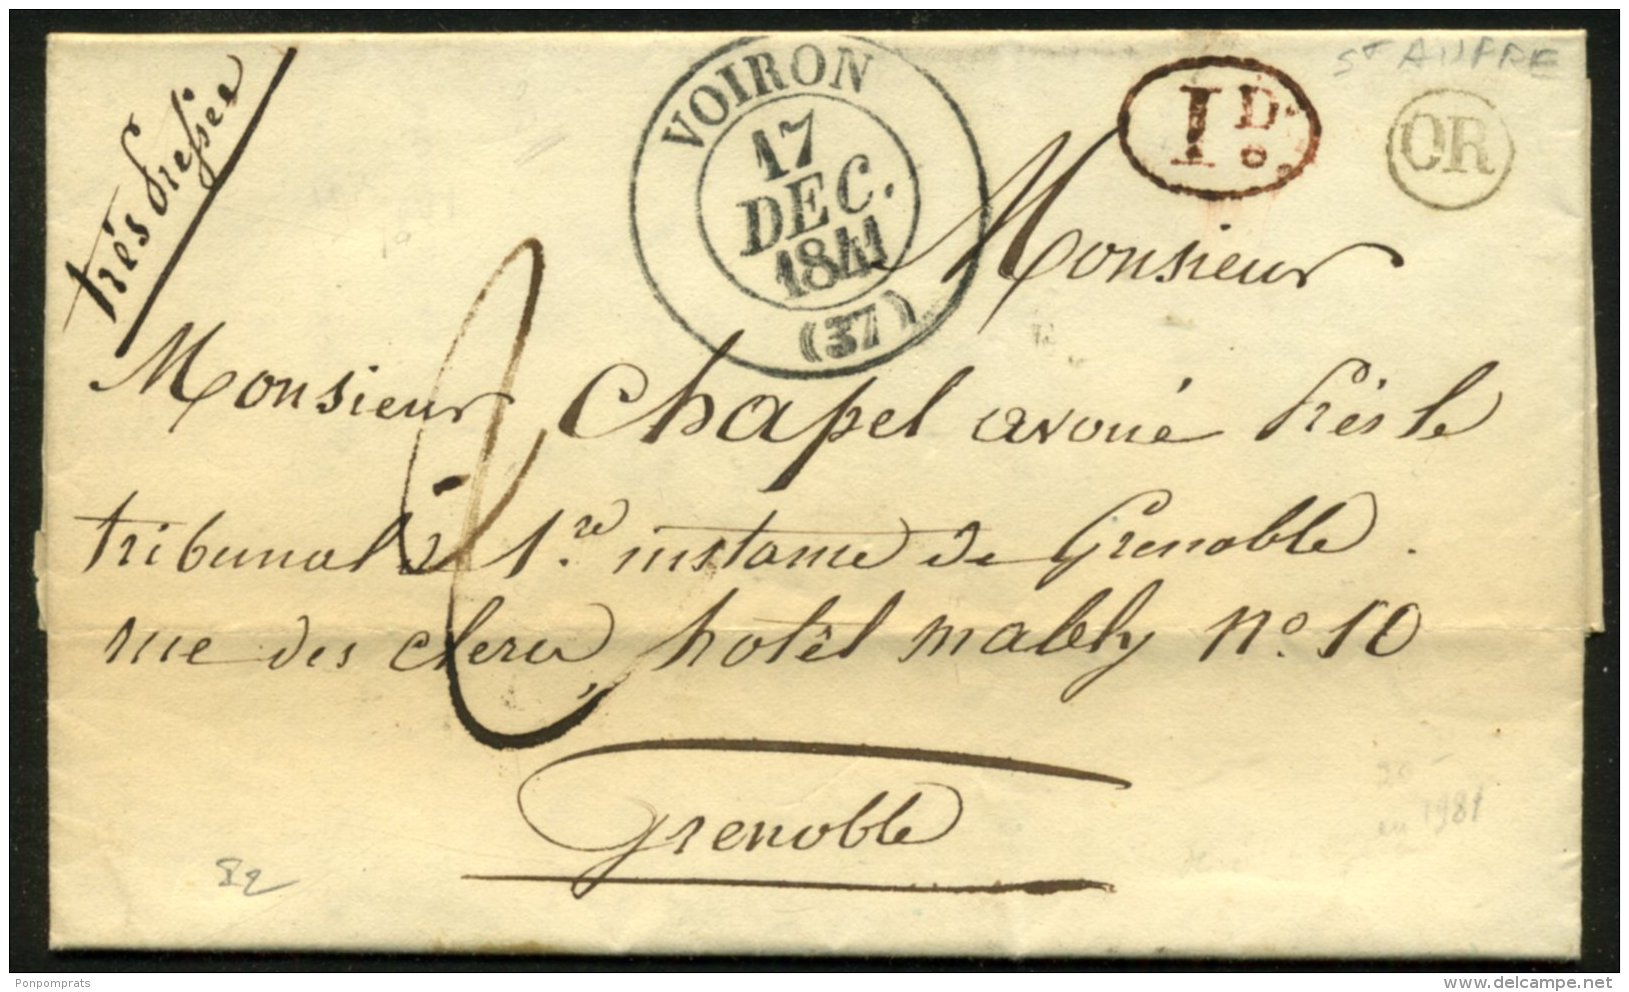 très pressée
VOIRON
17
DEC.
1841
(37)
1D.
OR
St AUPRE
Monsieur
Monsieur Chapel avoué près le
tribunal de 1.re instance de Grenoble.
rue des clercs, hotêl mably n.o 10
Grenoble
2
82
en 1981
Ponpomprats
delcampe.net